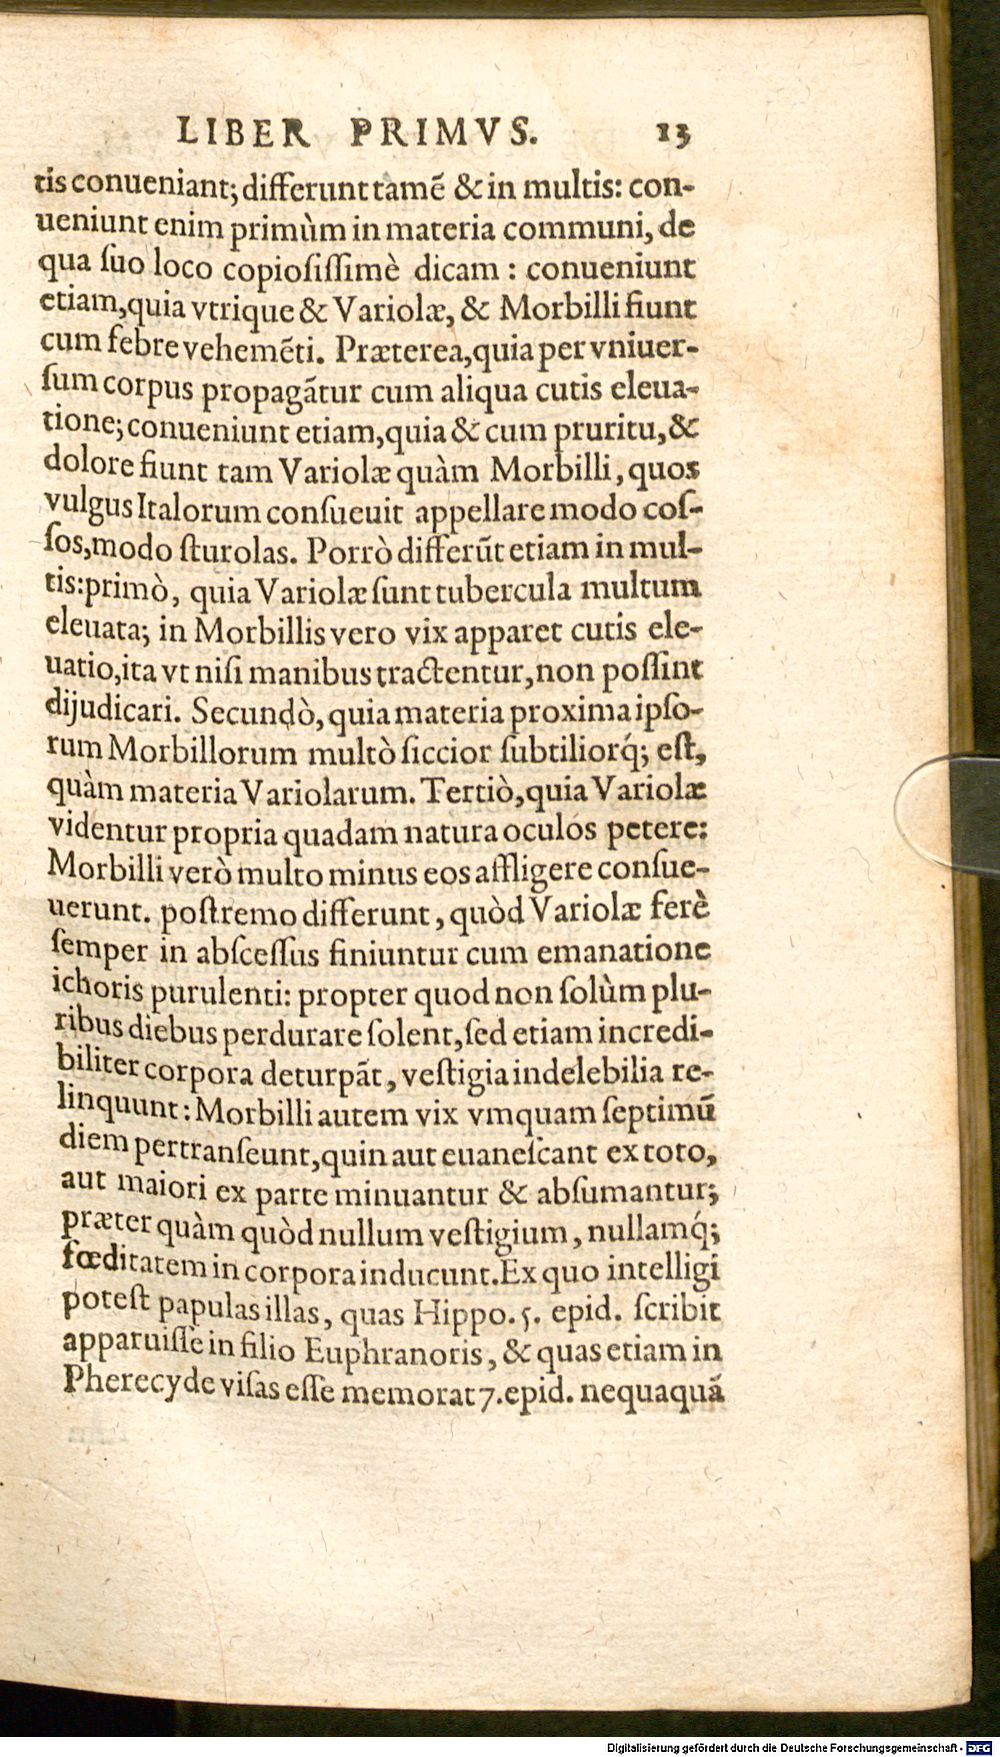 LIBER PRIMVS. 13
tis conueniant; differunt tamẽ & in multis: con-
ueniunt enim primùm in materia communi, de
qua ſuo loco copioſiſſimè dicam : conueniunt
etiam, quia vtrique & Variolæ, & Morbilli fiunt
cum febre vehemẽti. Præterea, quia per vniuer-
ſum corpus propagãtur cum aliqua cutis eleua-
tione; conueniunt etiam, quia & cum pruritu, &
dolore fiunt tam Variolæ quàm Morbilli, quos
vulgus Italorum conſueuit appellare modo coſ-
ſos, modo ſturolas. Porrò differũt etiam in mul-
tis: primò, quia Variolæ ſunt tubercula multum
eleuata; in Morbillis vero vix apparet cutis ele-
uatio, ita vt niſi manibus tractentur, non poſſint
dijudicari. Secundò, quia materia proxima ipſo-
rum Morbillorum multò ſiccior ſubtiliorq́; eſt,
quàm materia Variolarum. Tertiò, quia Variolæ
videntur propria quadam natura oculos petere:
Morbilli verò multo minus eos affligere conſue-
uerunt. poſtremo differunt, quòd Variolæ ferè
ſemper in abſceſſus finiuntur cum emanatione
ichoris purulenti: propter quod non ſolùm plu-
ribus diebus perdurare ſolent, ſed etiam incredi-
biliter corpora deturpãt, veſtigia indelebilia re-
linquunt: Morbilli autem vix vmquam ſeptimũ
diem pertranſeunt, quin aut euaneſcant ex toto,
aut maiori ex parte minuantur & abſumantur;
præter quàm quòd nullum veſtigium, nullamq́;
fœditatem in corpora inducunt. Ex quo intelligi
poteſt papulas illas, quas Hippo. 5. epid. ſcribit
apparuiſſe in filio Euphranoris, & quas etiam in
Pherecyde viſas eſſe memorat 7. epid. nequaquã
Digitalisierung gefördert durch die Deutsche Forschungsgemeinschaft - DFG